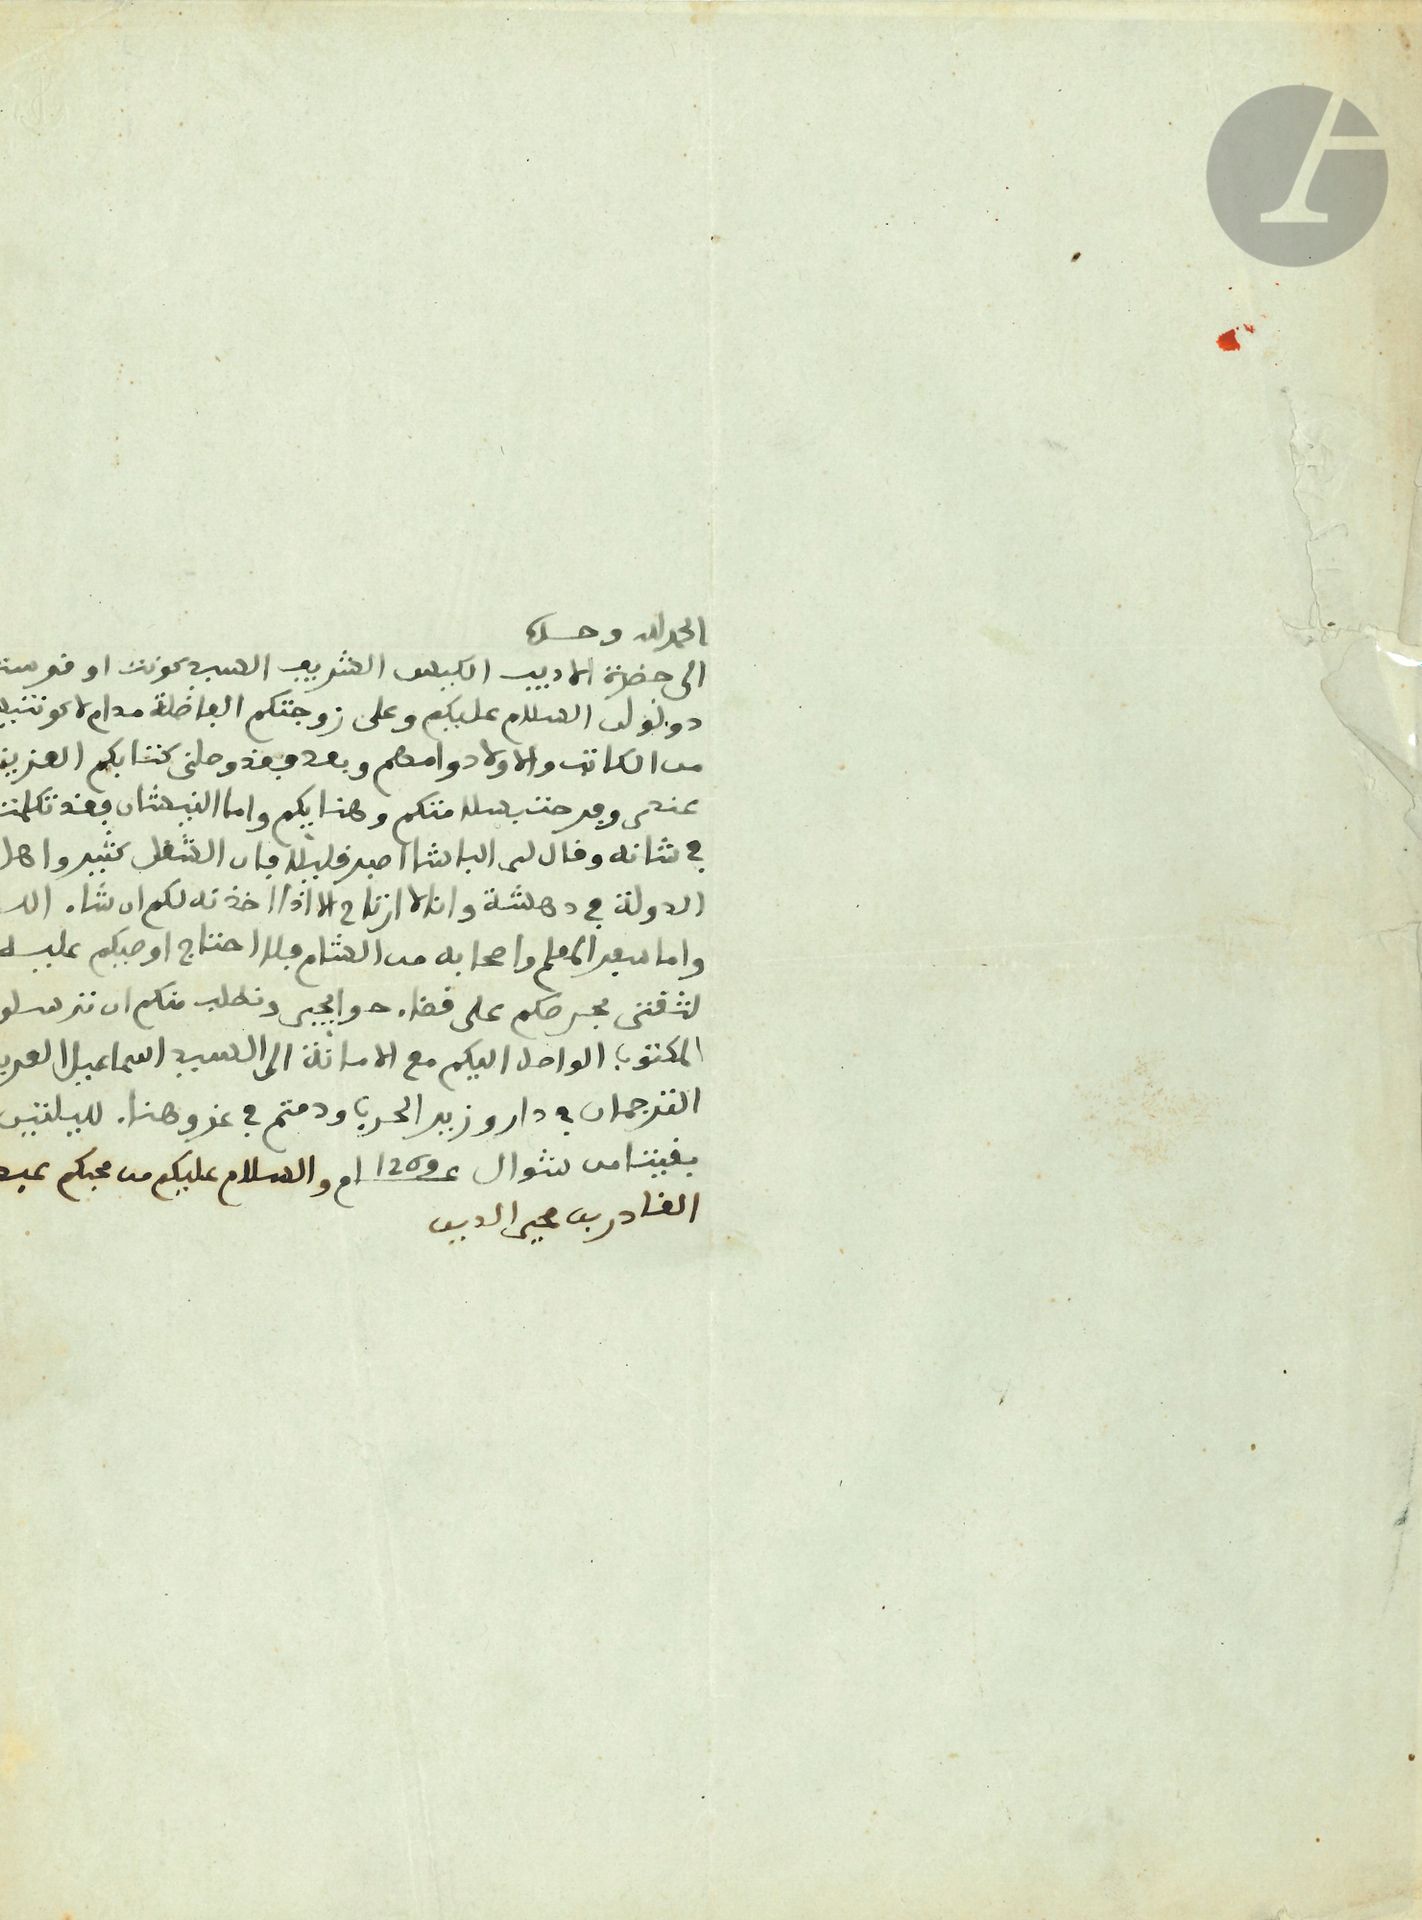 الحمد لله وحده
الى حضرة الاديب الكيس الشريف السيد كونت او فوست
دوبلول السلام عليكم وعلى زوجتكم الفاضلة مدام لا كونتيس
من الكاتب والاولاد وامهم وبعد وفقد وصلنى كتابكم العزيز
عندى وفرحت بسلامتكم وهنايكم واما النيشان وفقد تكلمت
في شانه وقال لى الباشا اصبر قليلا فان الشغل كثير واهل
الدولة في دهشة وانا لا ارتاح الا اذا اخذته لكم ان شاء الله
واما سعر المعلم واصحابه من الشام فلا احتاج اوصيكم عليه
لثقتى بحرصكم على قضاء حوايجى ونطلب منكم ان ترسلوا
المكتوب الواصل اليكم مع الامانة الى السيد اسماعيل العربى
الترجمان في دار وزير الحرب ودمتم في عز وهنا. لليلتين
بقيتا من شوال عـ1269ـام والسلام عليكم من محبكم عبد
القادر بن محيى الدين